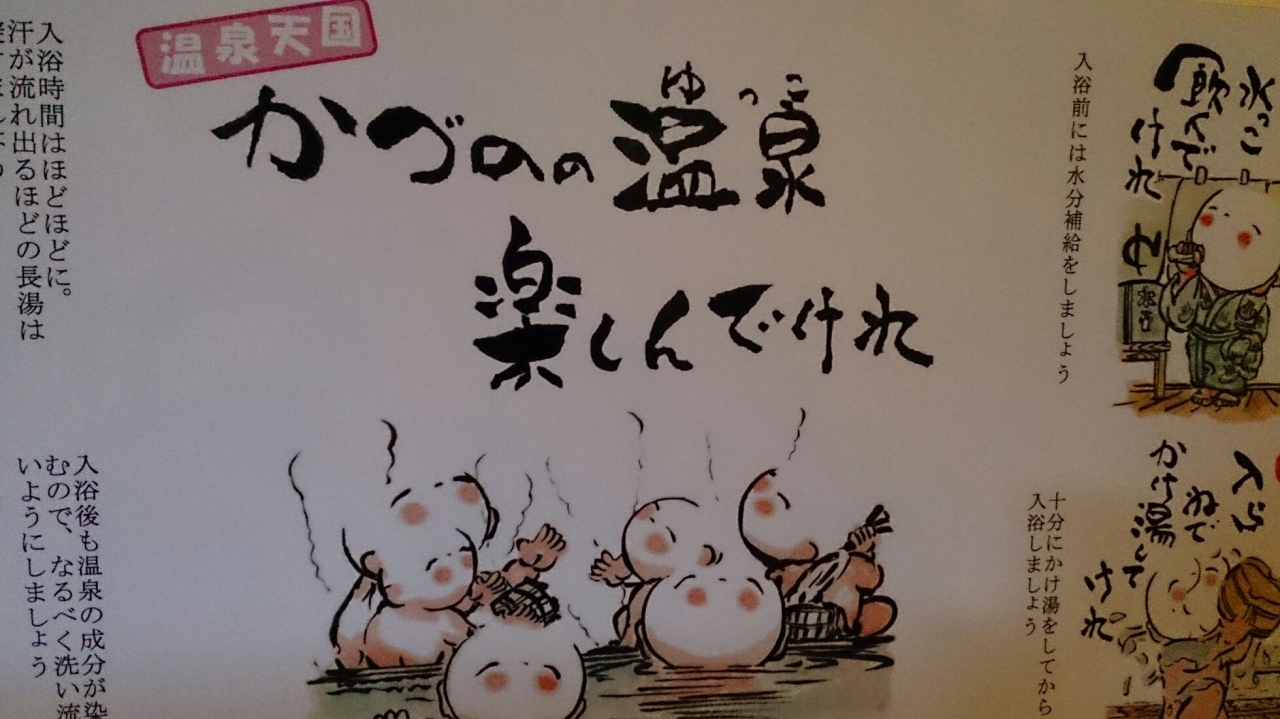 温泉天国
ゆっこ
かづのの温泉
楽しんでけれ
水っこ
飲んで
けれ
ゆ
入浴前には水分補給をしましょう
入ら
ねで
かけ湯して
けれ
十分にかけ湯をしてから
入浴しましょう
入浴時間はほどほどに。
汗が流れ出るほどの長湯は
入浴後も温泉の成分が染
むので、なるべく洗い流
いようにしましょう